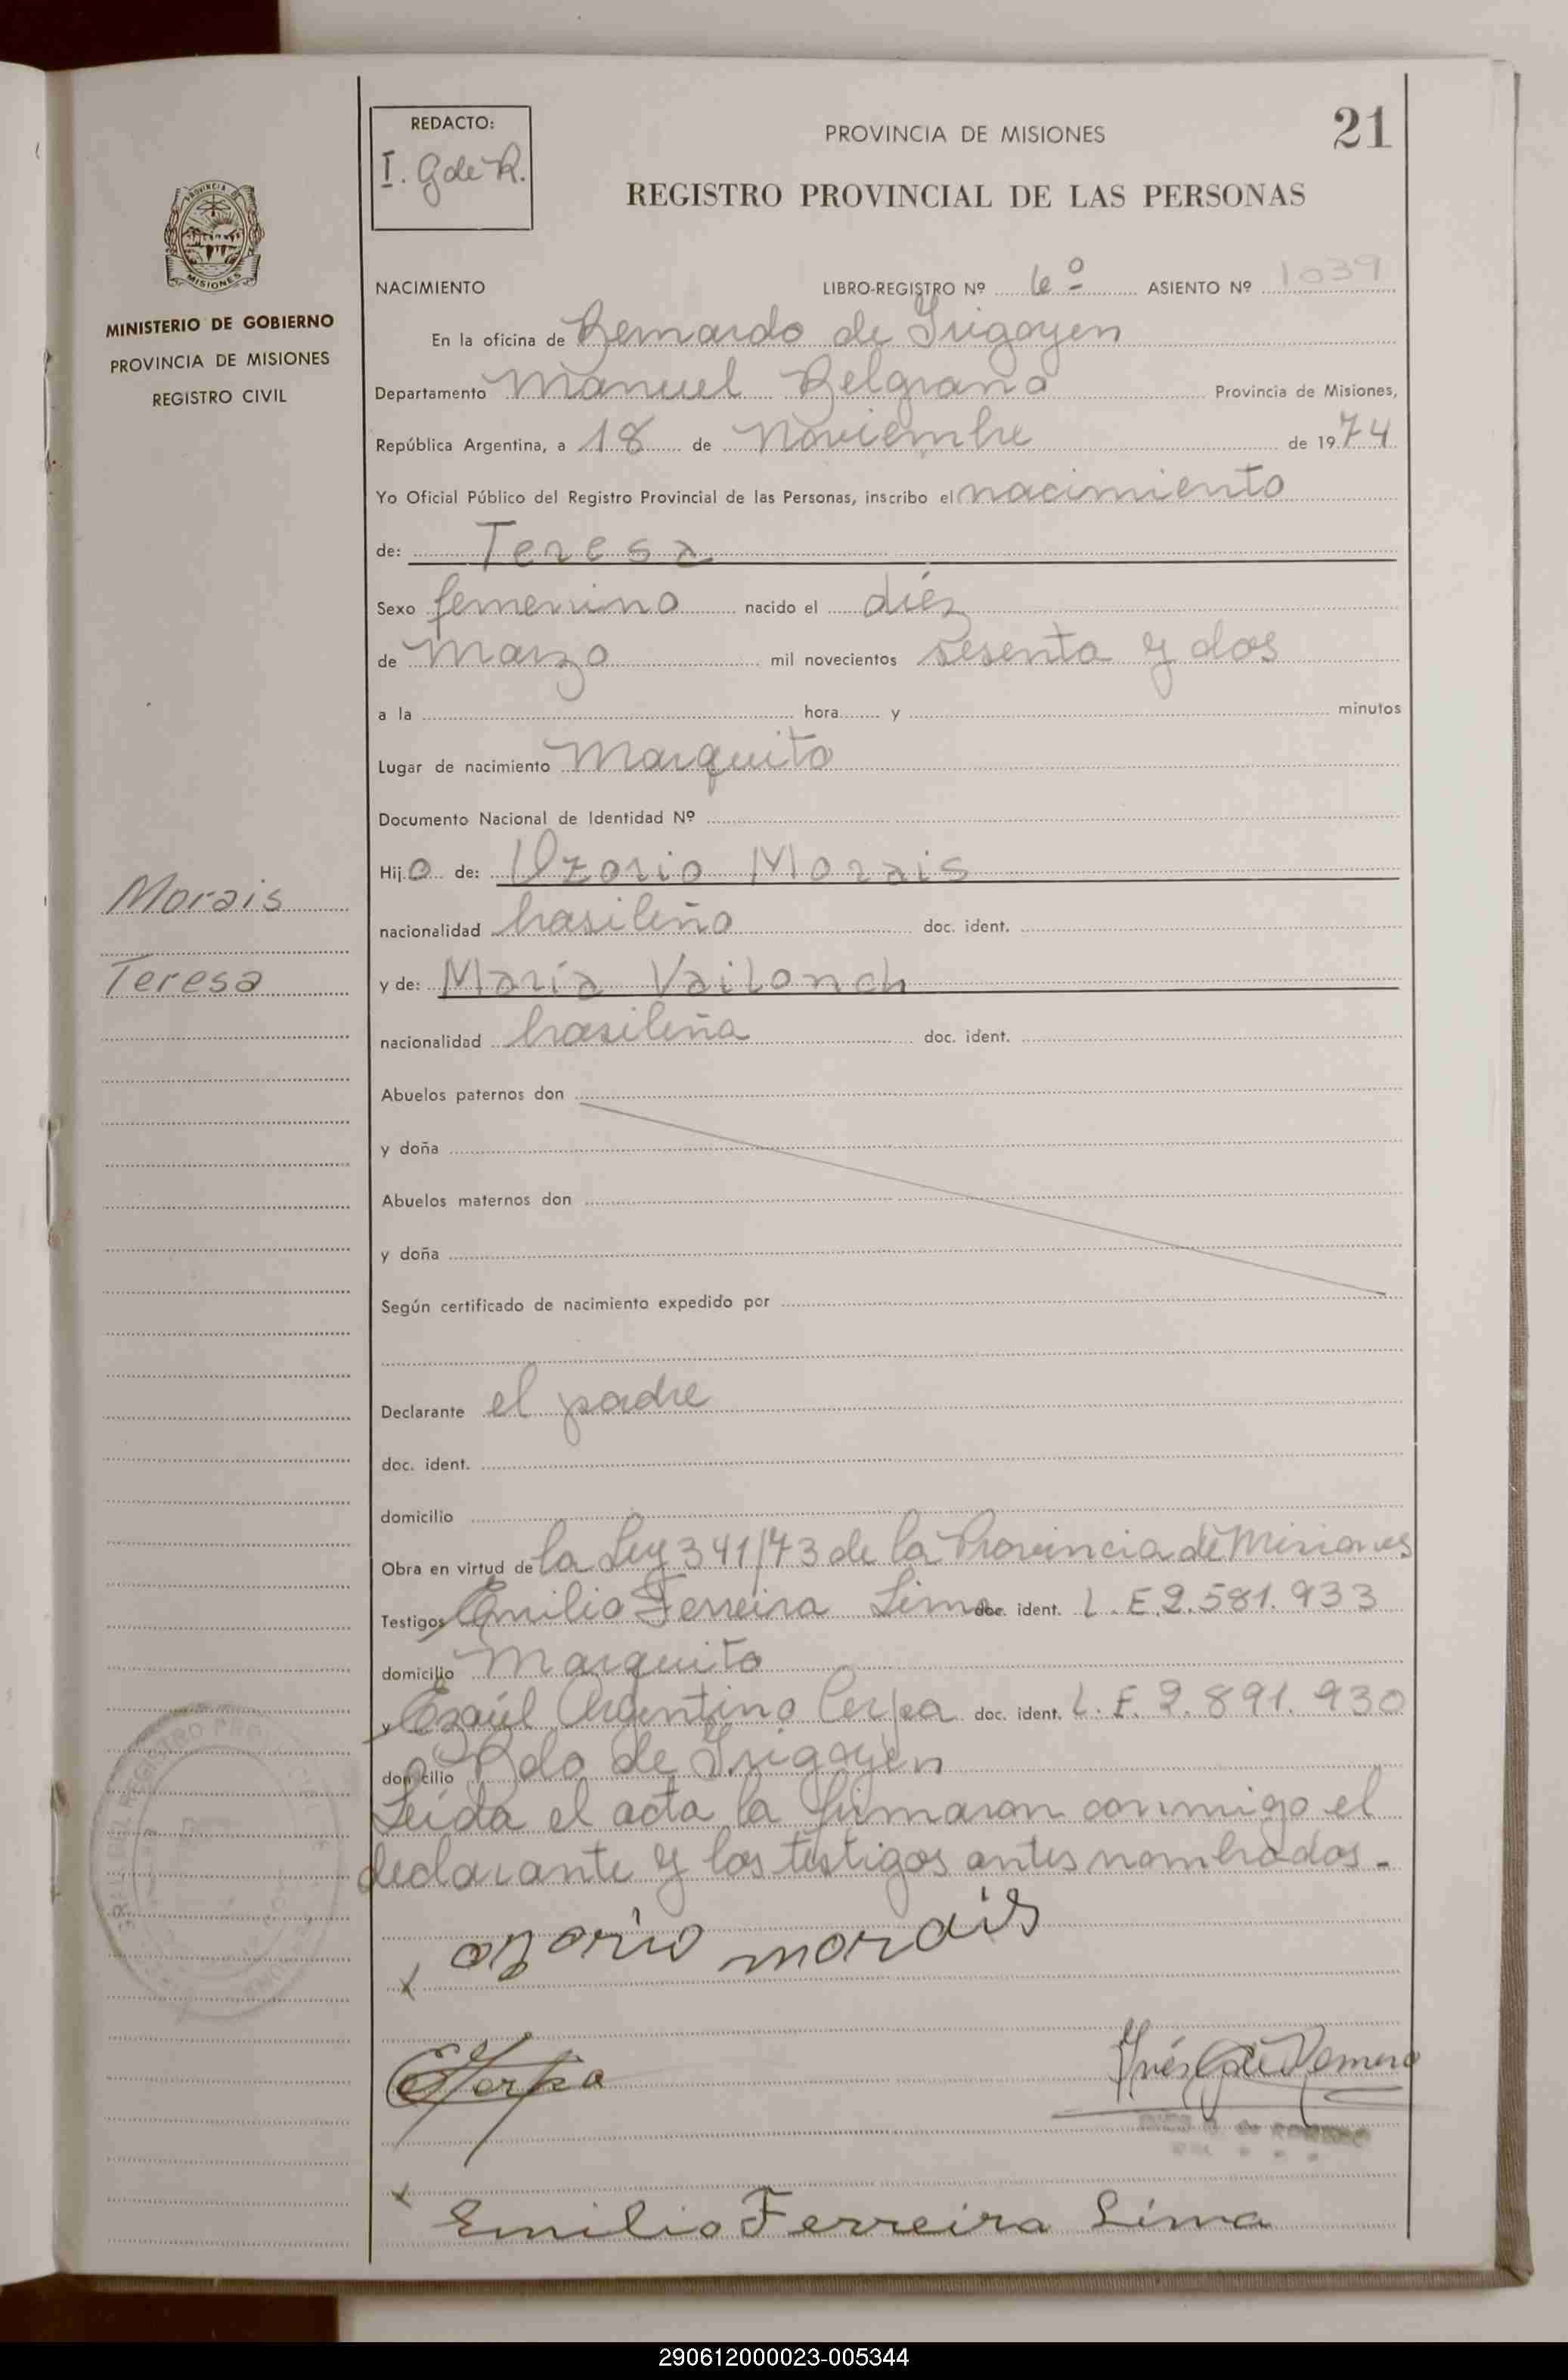 21
REDACTO:
I. G de R.
PROVINCIA DE MISIONES
REGISTRO PROVINCIAL DE LAS PERSONAS
PROVINCIA DE
MISIONES
MINISTERIO DE GOBIERNO
PROVINCIA DE MISIONES
REGISTRO CIVIL
NACIMIENTO LIBRO-REGISTRO Nº 6º ASIENTO Nº 1039
En la oficina de Bernardo de Irigoyen
Departamento Manuel Belgrano Provincia de Misiones,
República Argentina, a 18 de Noviembre de 1974
Yo Oficial Público del Registro Provincial de las Personas, inscribo el nacimiento
de: Teresa
Sexo femenino nacido el diéz
de Marzo mil novecientos sesenta y dos
a la hora y minutos
Lugar de nacimiento Marquito
Documento Nacional de Identidad Nº
Hijo de: Ozorio Morais
Morais
nacionalidad brasileño doc. ident.
Teresa
y de: María Vailonch
nacionalidad brasileña doc. ident.
Abuelos paternos don
y doña
Abuelos maternos don
y doña
Según certificado de nacimiento expedido por
Declarante el padre
doc. ident.
domicilio
Obra en virtud de la Ley 341/73 de la Provincia de Misiones
Testigos Emilio Ferreira Lima doc. ident. L.E. 2.581.933
domicilio Marquito
y Ezaúl Argentino Cerpa doc. ident. L.E. 2.891.930
domicilio Bdo de Irigoyen
Leída el acta la firmaron conmigo el
declarante y los testigos antes nombrados.-
x ozorio morais
Inés G de Romero
INES G. de ROMERO
x
Emilio Ferreira Lima
290612000023-005344